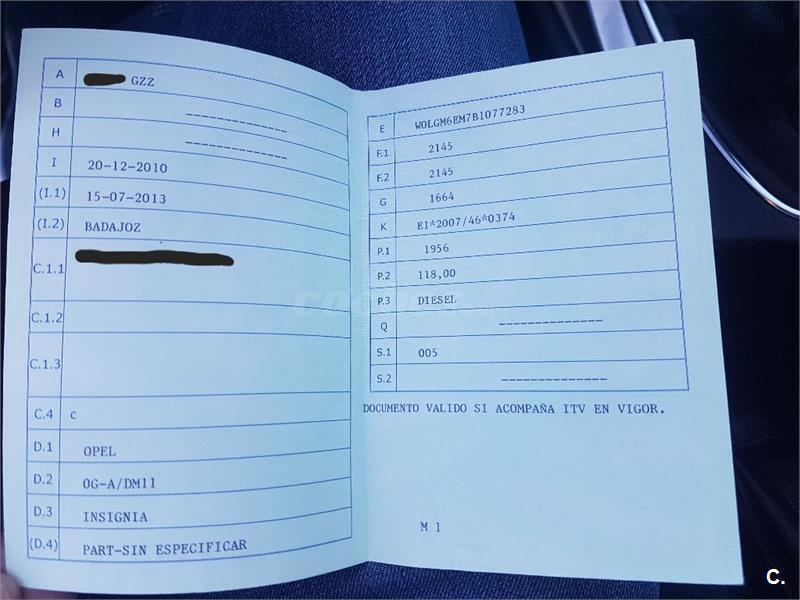 A GZZ
B -------------
H -------------
I 20-12-2010
(I.1) 15-07-2013
(I.2) BADAJOZ
C.1.1
C.1.2
C.1.3
C.4 c
D.1 OPEL
D.2 0G-A/DM11
D.3 INSIGNIA
(D.4) PART-SIN ESPECIFICAR
E W0LGM6EM7B1077283
F.1 2145
F.2 2145
G 1664
K E1*2007/46*0374
P.1 1956
P.2 118,00
P.3 DIESEL
Q -------------
S.1 005
S.2 -------------
DOCUMENTO VALIDO SI ACOMPAÑA ITV EN VIGOR.
M 1
C.